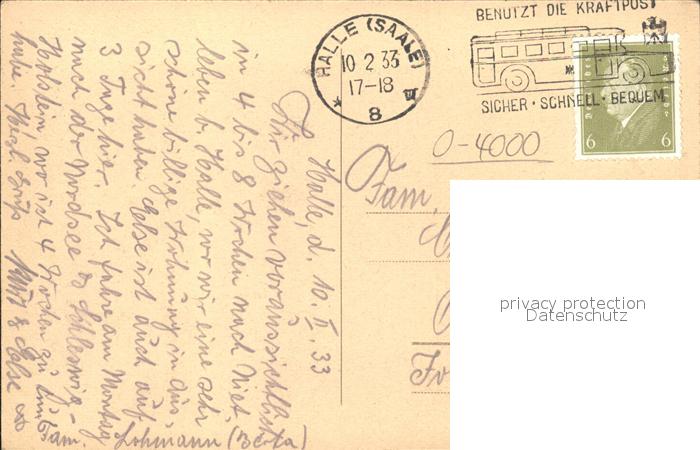 BENUTZT DIE KRAFTPOST
SICHER · SCHNELL · BEQUEM
HALLE (SAALE)
10 2 33
17-18
* 8
6 6
0-4000
Fam.
privacy protection
Datenschutz
Halle, d. 10. II. 33
Wir ziehen voraussichtlich
in 4 bis 8 Wochen nach Niet
leben b. Halle, wo wir eine sehr
schöne billige Wohnung in Aus-
sicht haben. Else ist auch auf
3 Tage hier. Ich fahre am Montag
nach der Nordsee Schleswig-
Holstein wo ich 4 Wochen zu
habe. Herzl. Grüße
& Else
Fam. Lohmann